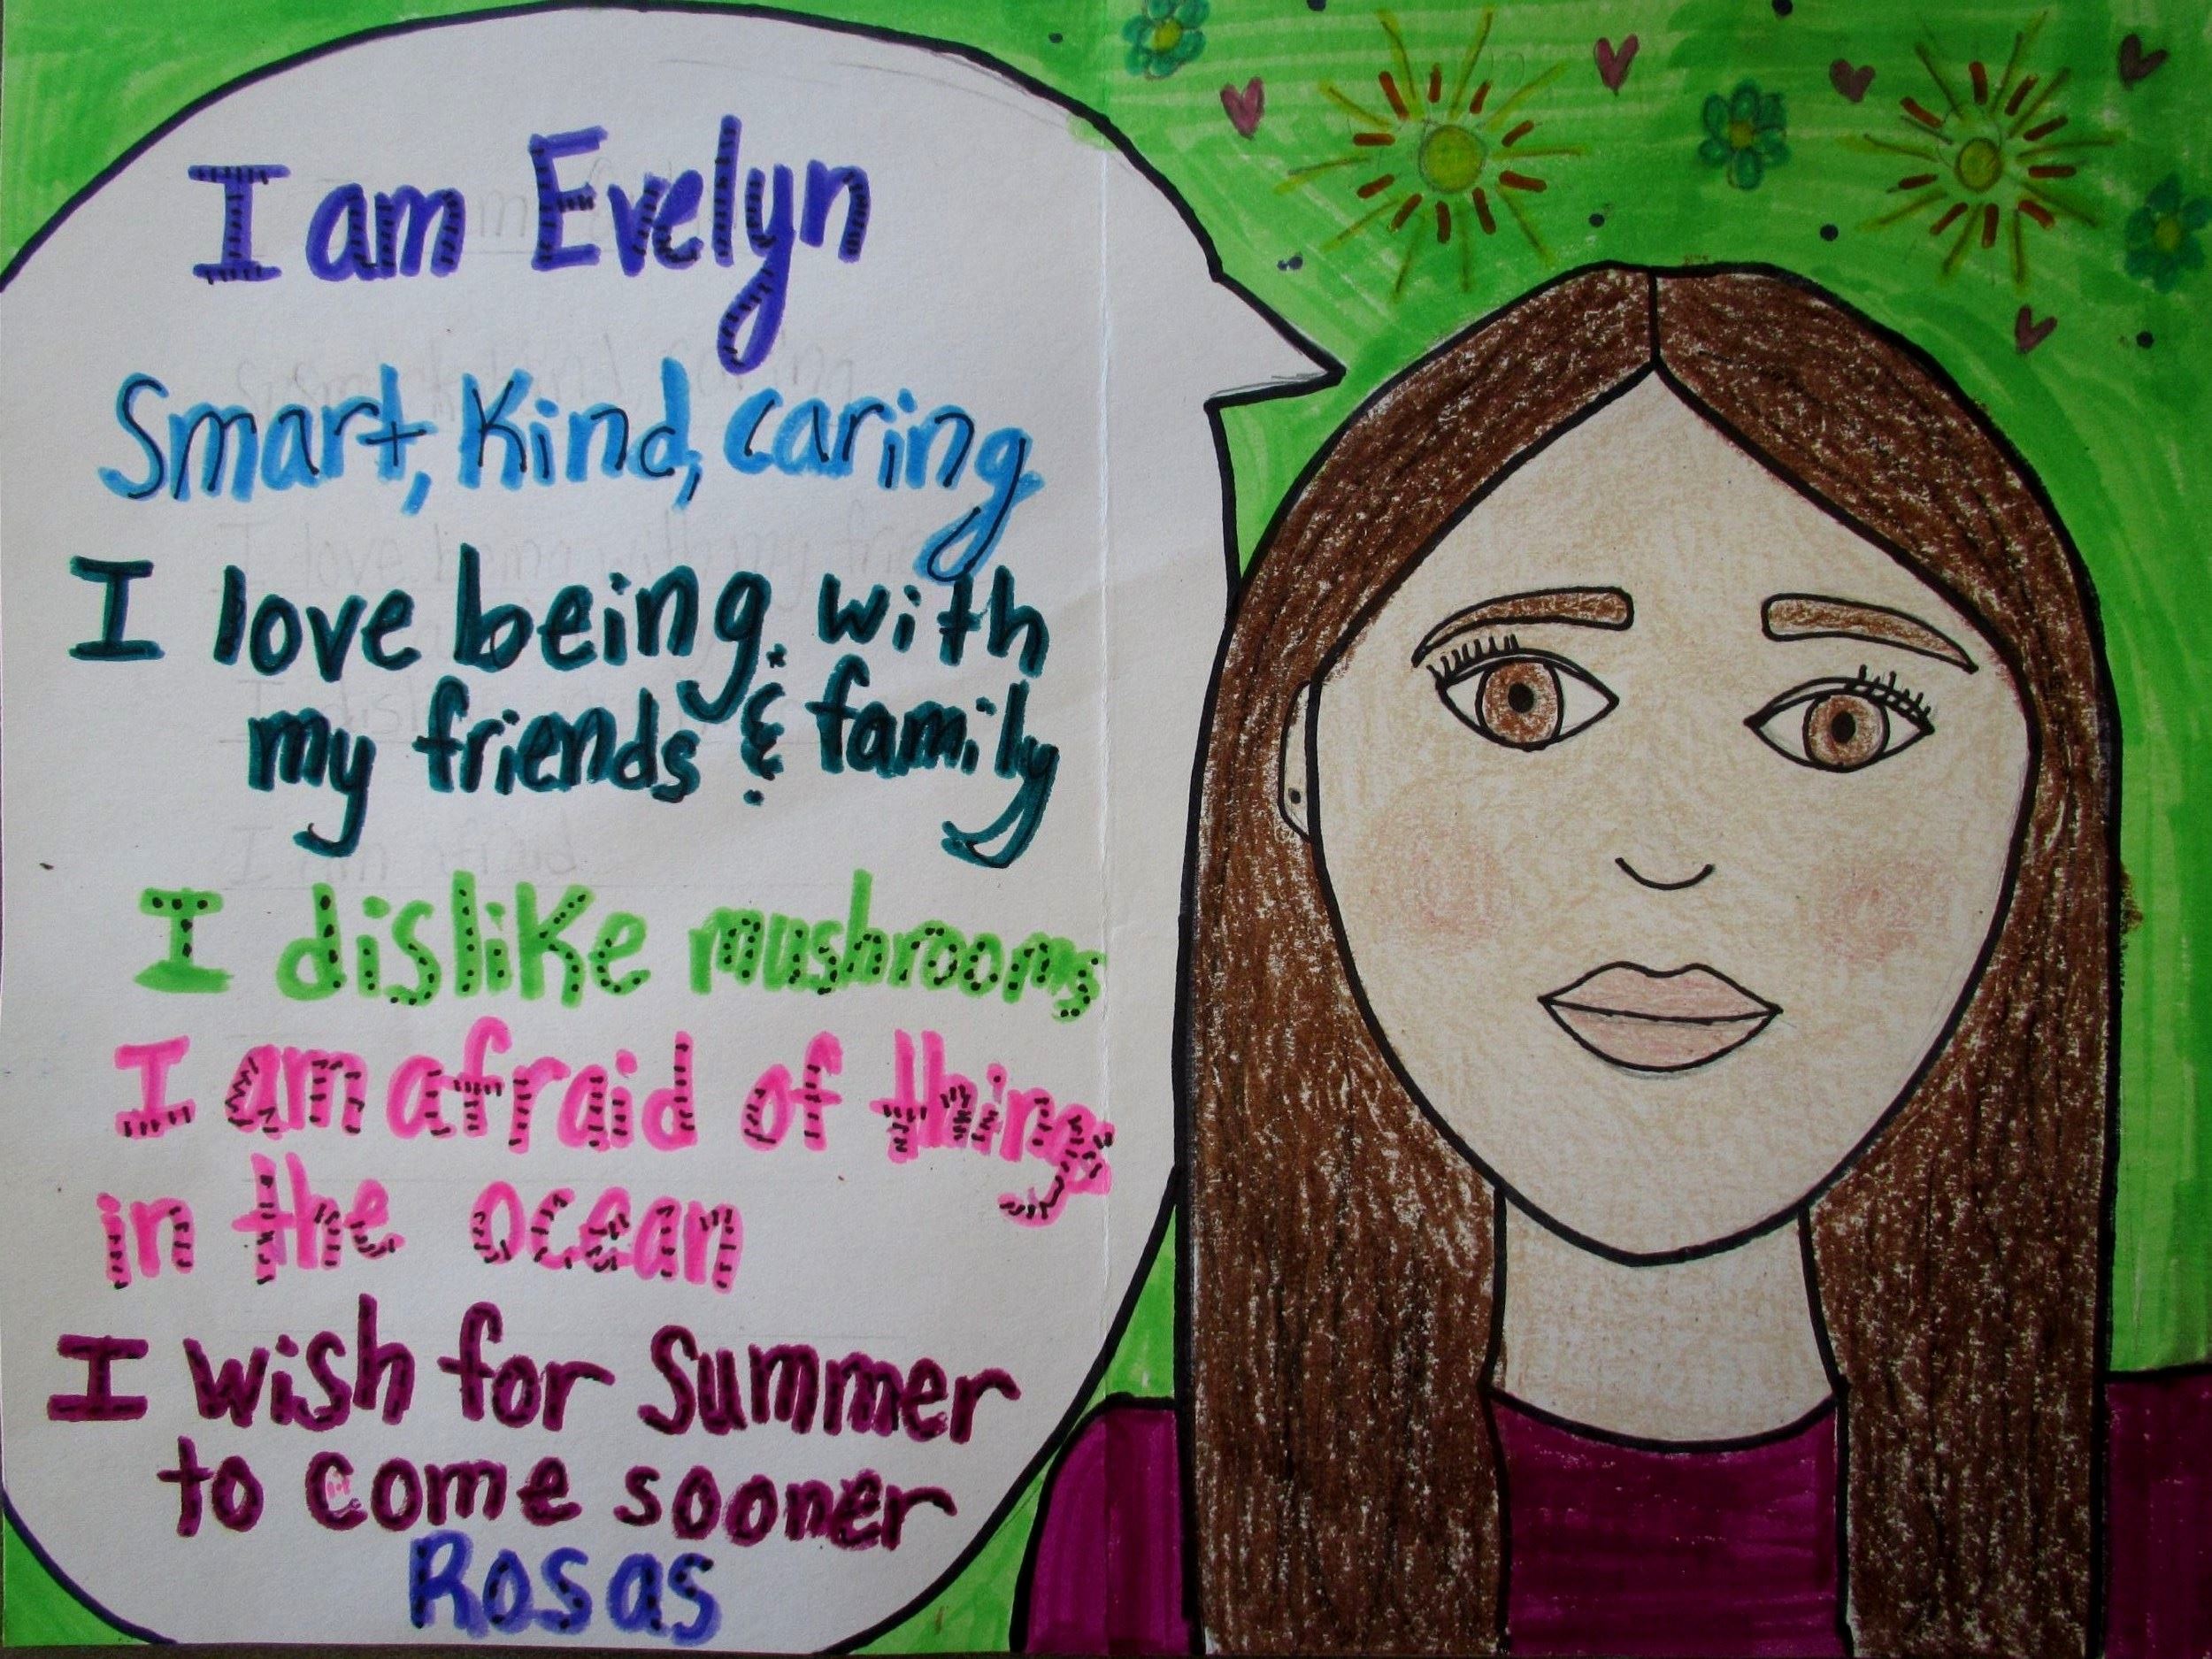 I am Evelyn
Smart, Kind, caring
I love being with
my friends & family
I dislike mushrooms
I am afraid of things
in the ocean
I wish for Summer
to come sooner
Rosas